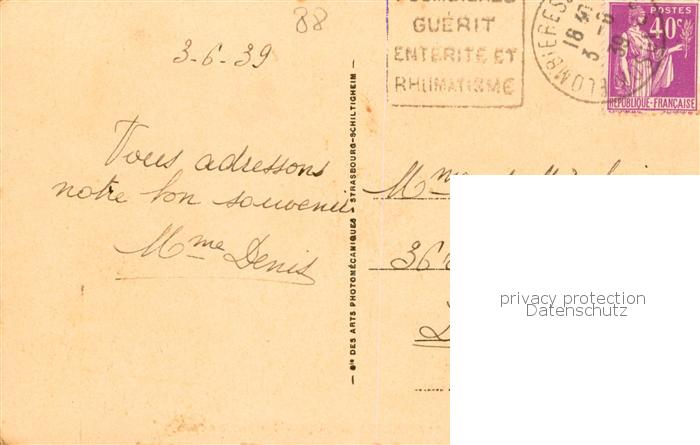 88
3-6-39
Vous adressons
notre bon souvenir
Mme Denis
Cie DES ARTS PHOTOMÉCANIQUES - STRASBOURG-SCHILTIGHEIM
GUÉRIT
ENTÉRITE ET
RHUMATISME
PLOMBIERES
18
3 -6
39
POSTES
40c
RÉPUBLIQUE-FRANÇAISE
Mme
36
privacy protection
Datenschutz